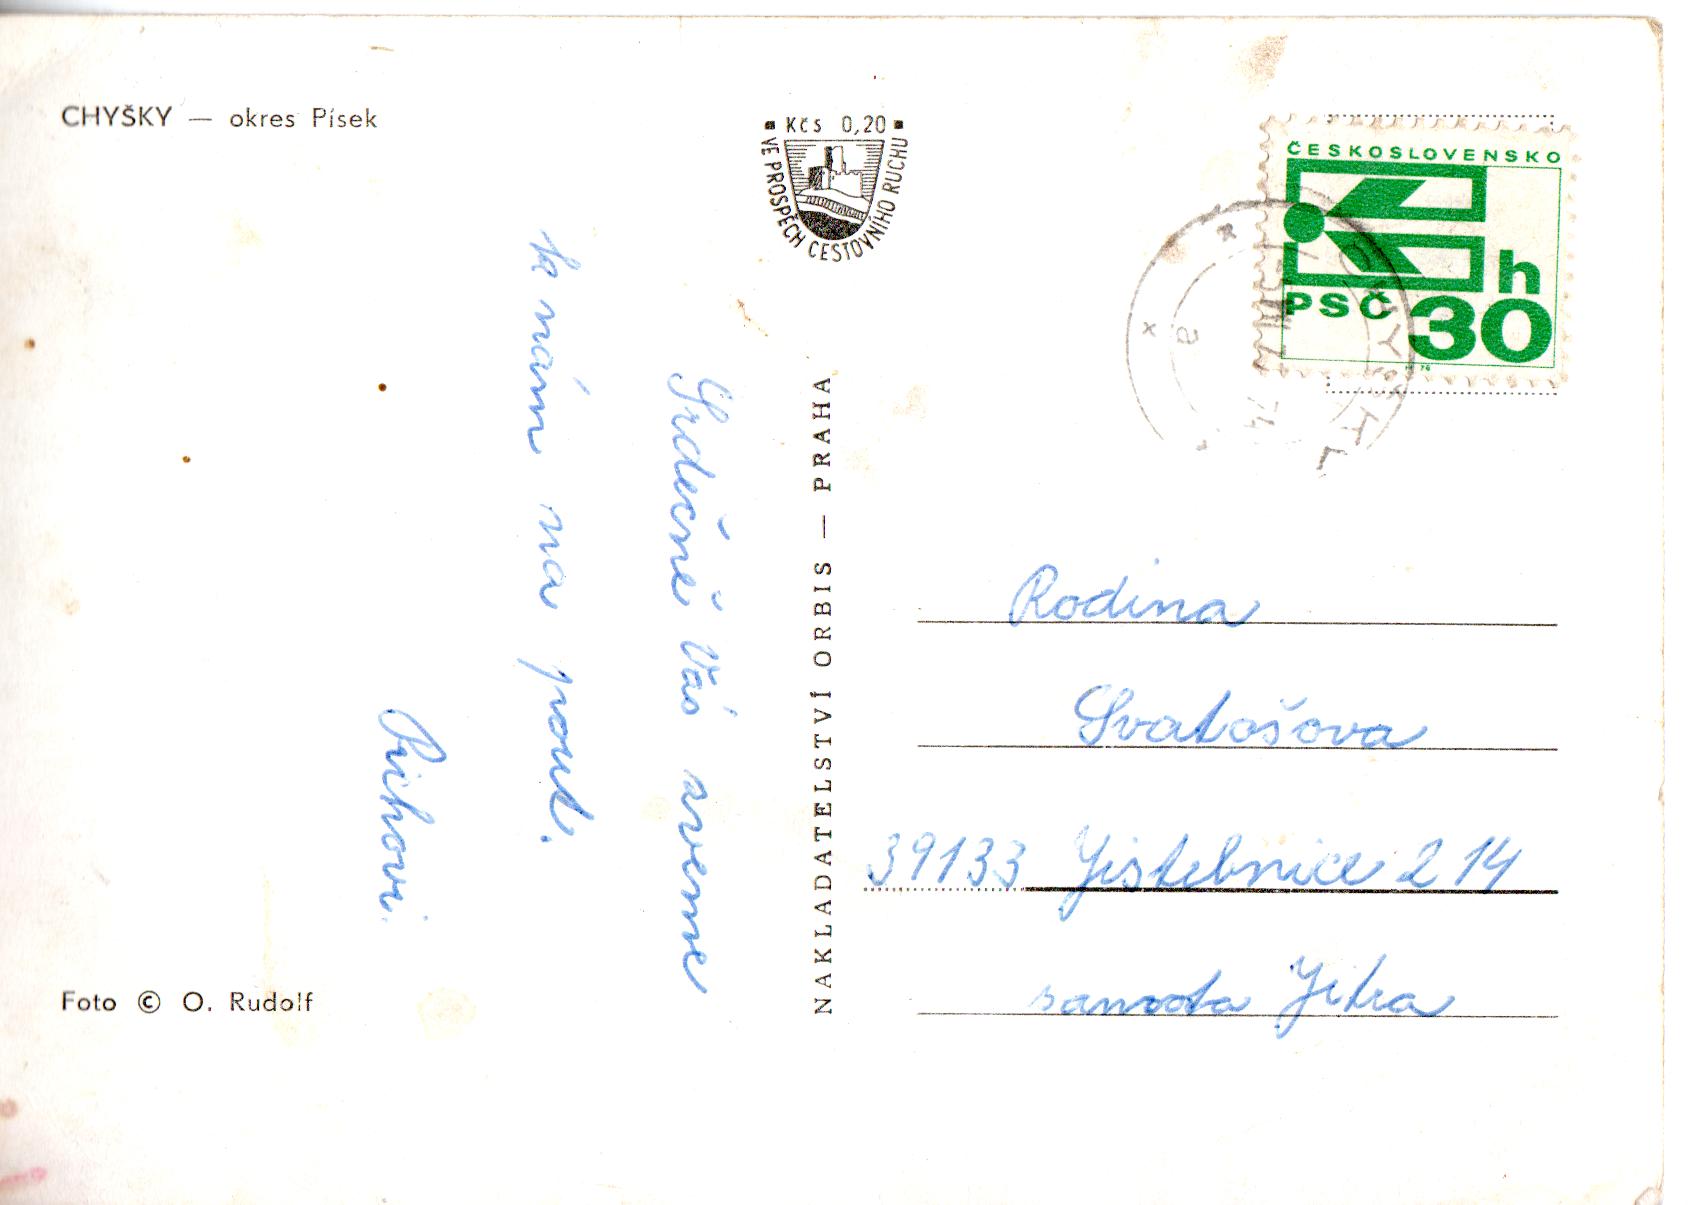 CHYŠKY — okres Písek
Kčs 0,20
VE PROSPĚCH CESTOVNÍHO RUCHU
ČESKOSLOVENSKO
h
PSČ 30
a
74
Srdečně Vás zveme
k nám na pouť.
Říhovi.
NAKLADATELSTVÍ ORBIS — PRAHA
Rodina
Svatošova
39133 Jistebnice 214
samota Jitra
Foto © O. Rudolf